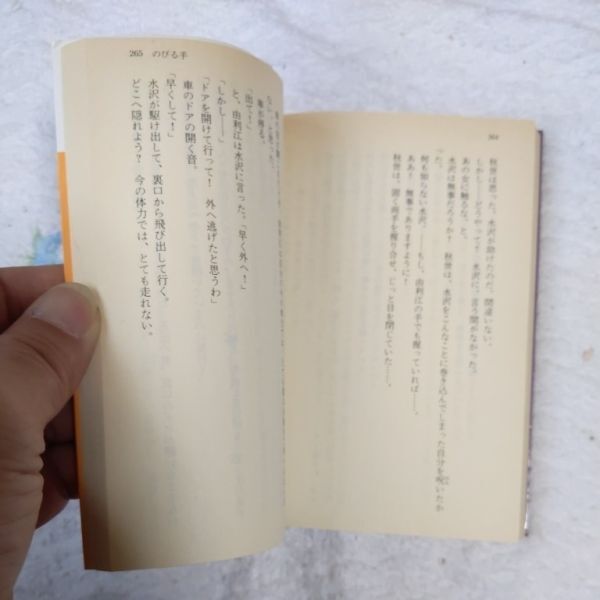 264
秋世は思った。水沢が助けたのだ。間違いない。
しかし――どうやって? 水沢に、言う間がなかった。
あの女に触るな、と。
水沢は無事だろうか? 秋世は、水沢をこんなことに巻き込んでしまった自分を呪いたか
った。
何も知らない水沢。――もし、由利江の手でも握っていれば――。
ああ! 無事でありますように!
秋世は、固く両手を握り合せ、じっと目を閉じていた――。
265 のびる手
車が停る。
「出て!」
と、由利江は水沢に言った。「早く外へ!」
「しかし――」
「ドアを開けて行って! 外へ逃げたと思うわ」
車のドアの開く音。
「早くして!」
水沢が駆け出して、裏口から飛び出して行く。
どこへ隠れよう? 今の体力では、とても走れない。